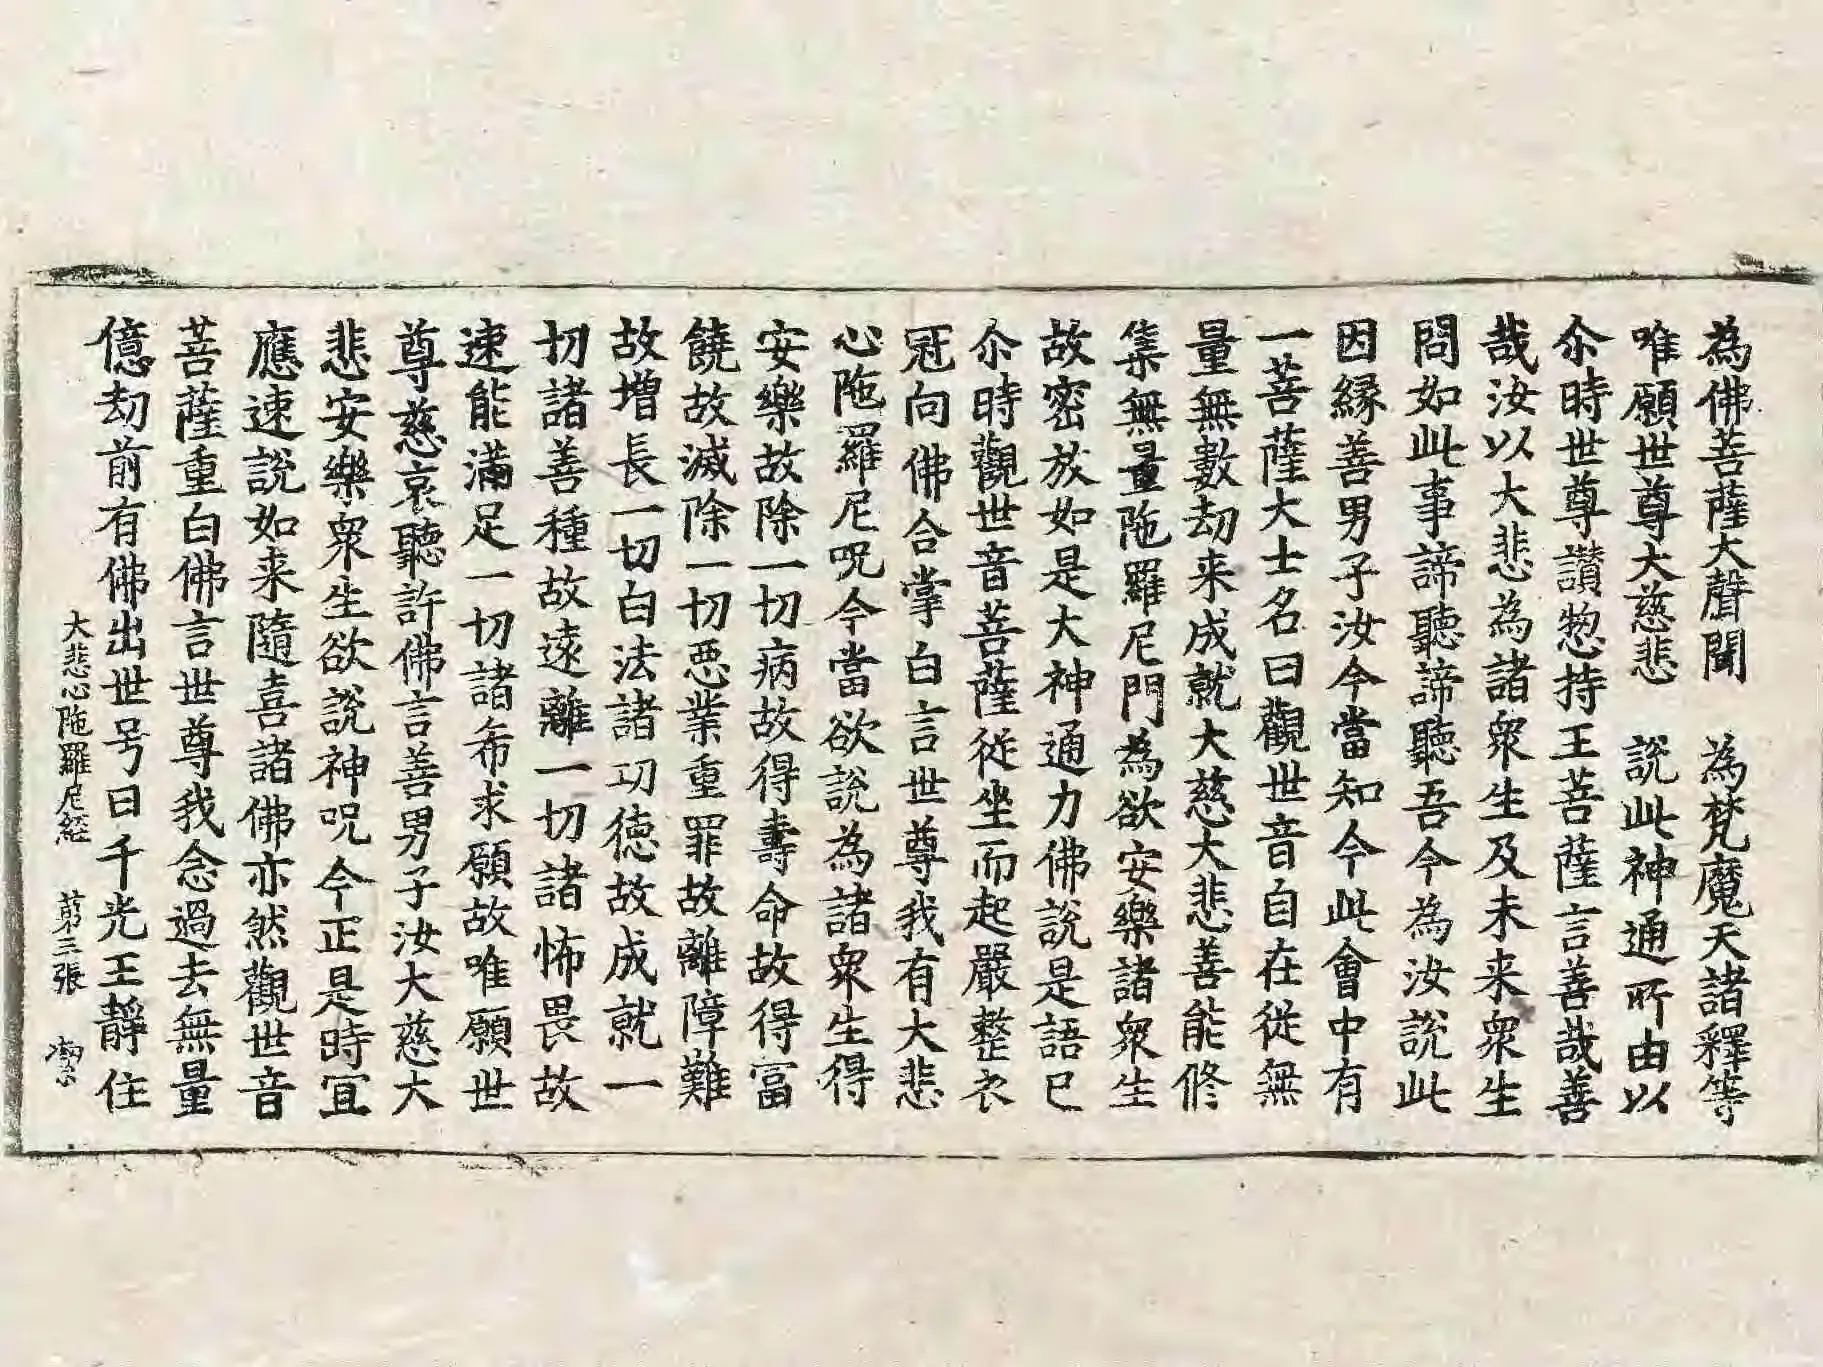 為佛菩薩大聲聞　為梵魔天諸釋等
唯願世尊大慈悲　說此神通所由以
尒時世尊讚惣持王菩薩言善哉善
哉汝以大悲為諸衆生及未来衆生
問如此事諦聽諦聽吾今為汝說此
因緣善男子汝今當知今此會中有
一菩薩大士名曰觀世音自在從無
量無數劫来成就大慈大悲善能修
集無量陁羅尼門為欲安樂諸衆生
故密放如是大神通力佛說是語已
尒時觀世音菩薩從坐而起嚴整衣
冠向佛合掌白言世尊我有大悲
心陁羅尼呪今當欲說為諸衆生得
安樂故除一切病故得壽命故得富
饒故滅除一切惡業重罪故離障難
故增長一切白法諸功德故成就一
切諸善種故遠離一切諸怖畏故
速能滿足一切諸希求願故唯願世
尊慈哀聽許佛言善男子汝大慈大
悲安樂衆生欲說神呪今正是時宜
應速說如来隨喜諸佛亦然觀世音
菩薩重白佛言世尊我念過去無量
億劫前有佛出世号曰千光王靜住
大悲心陁羅尼經　苐三張